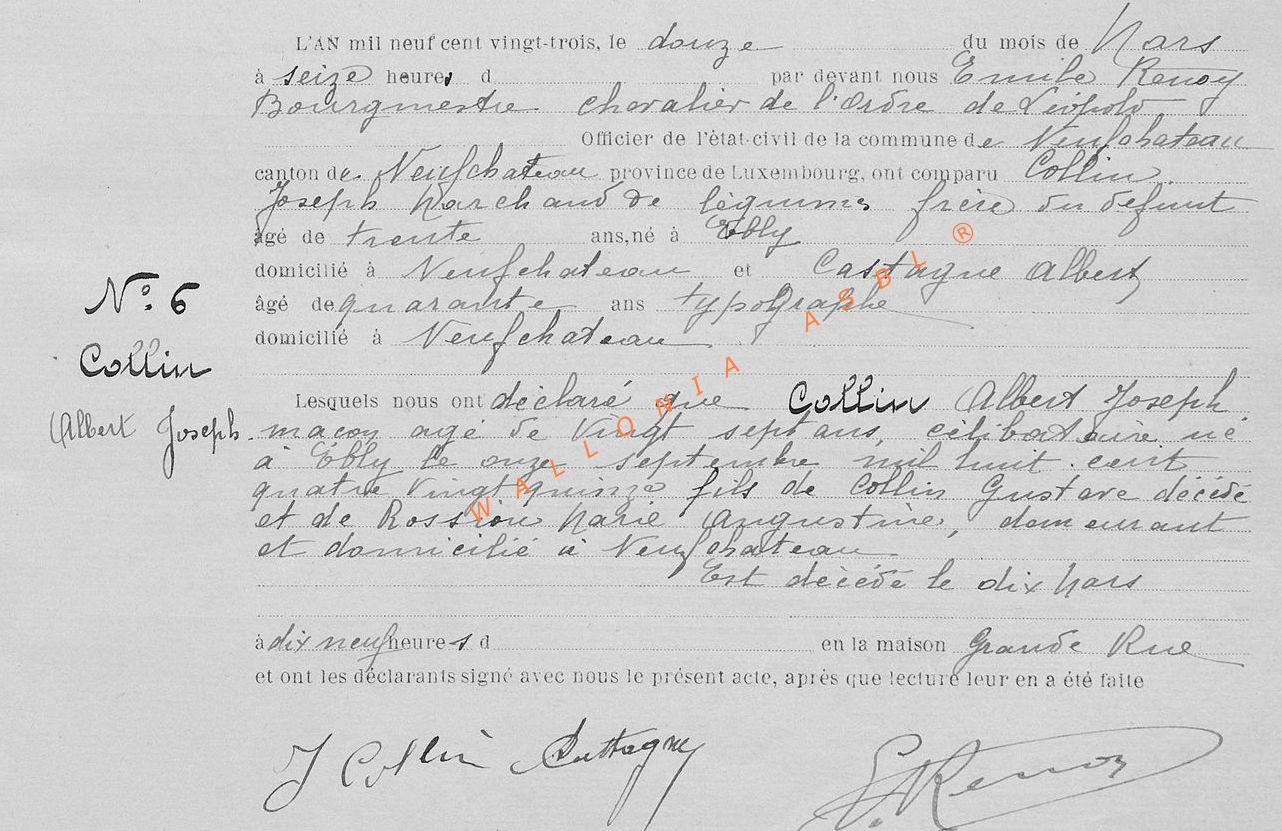 L'AN mil neuf cent vingt-trois, le douze du mois de Mars
à seize heures d par devant nous Emile Renoy
Bourgmestre Chevalier de l'Ordre de Léopold
Officier de l'état-civil de la commune de Neufchateau
canton de Neufchateau province de Luxembourg, ont comparu Collin
Joseph Marchand de légumes frère du défunt
âgé de trente ans, né à Ebly
domicilié à Neufchateau et Castagne Albert
N° 6
âgé de quarante ans typographe
domicilié à Neufchateau
Collin
Albert Joseph
Lesquels nous ont déclaré que Collin Albert Joseph
maçon agé de vingt sept ans, célibataire né
à Ebly le onze septembre mil huit cent
quatre vingt quinze fils de Collin Gustave décédé
et de Rossion Marie Augustine, demeurant
et domicilié à Neufchateau
Est décédé le dix Mars
à dix neuf heures d en la maison Grande Rue
et ont les déclarants signé avec nous le présent acte, après que lecture leur en a été faite
J Collin E. Renoy
WALLONIA ASBL ®